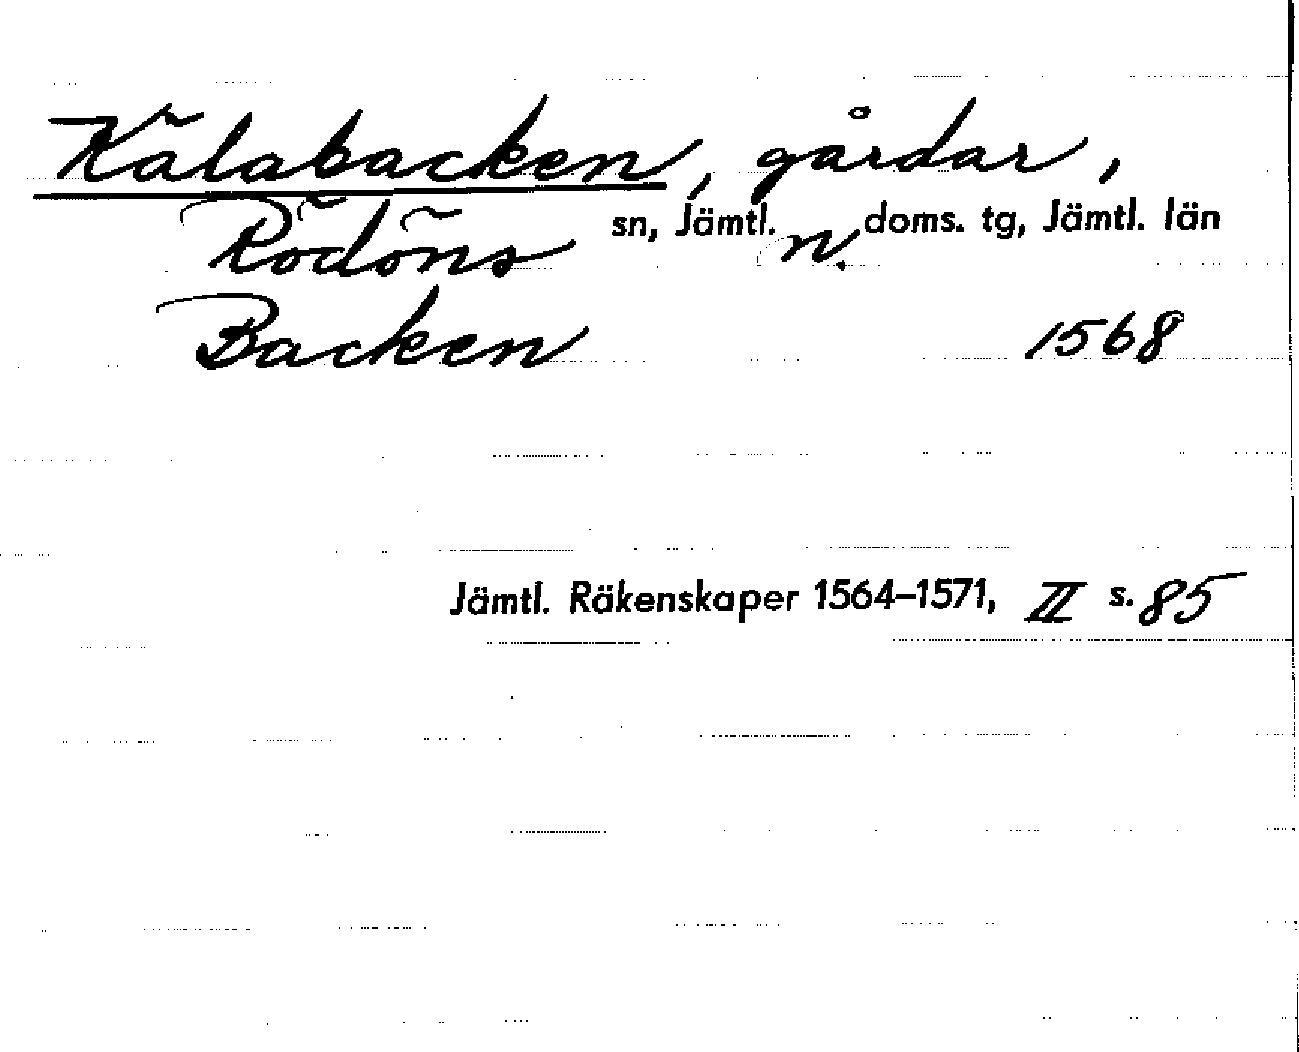 Kälabacken, gårdar,
Rödöns sn, Jämtl. n. doms. tg, Jämtl. län
Backen 1568
Jämtl. Räkenskaper 1564–1571, II s. 85